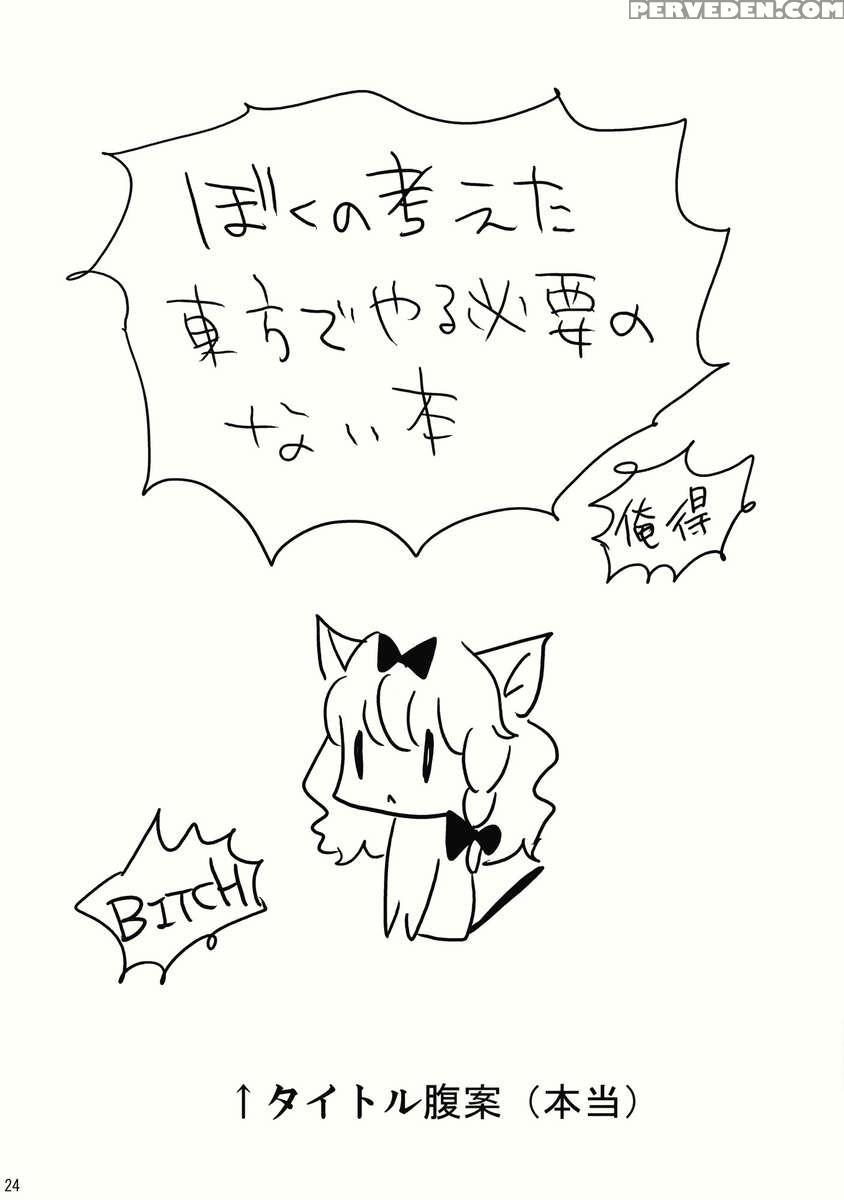 PERVEDEN.COM
ぼくの考えた
東方でやる必要の
ない本
俺得
BITCH
↑タイトル腹案（本当）
24